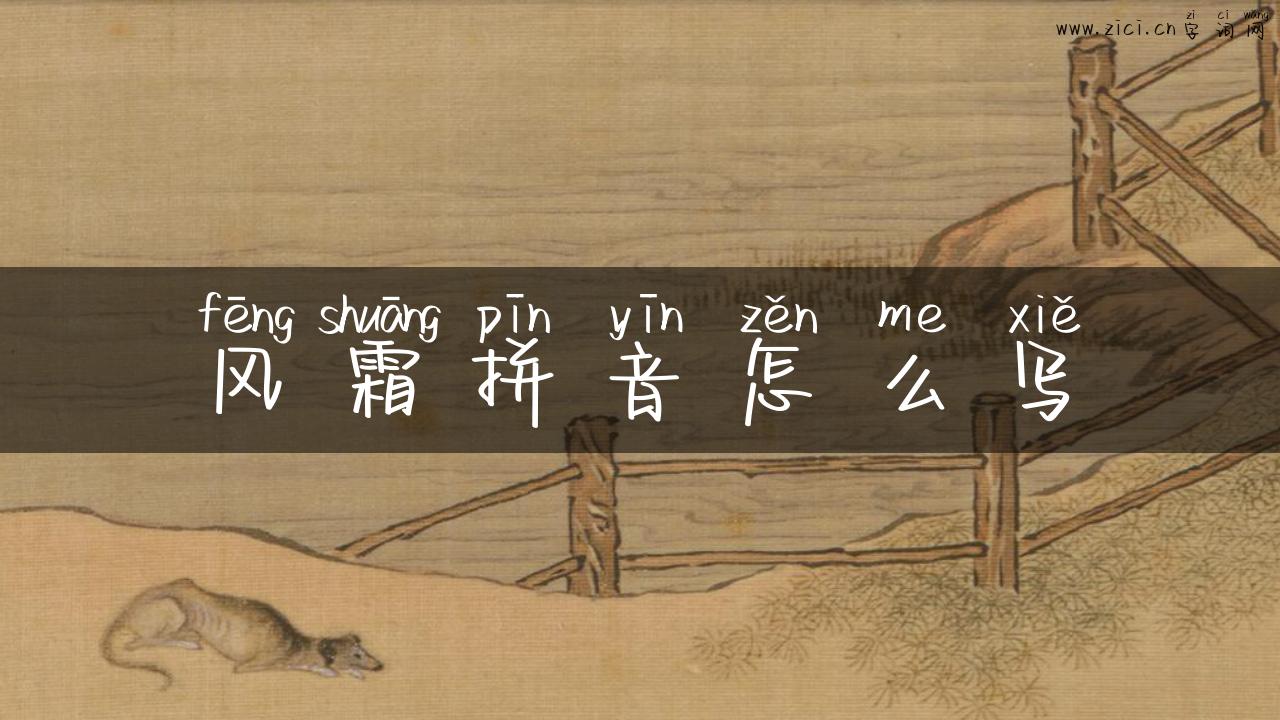 zi ci wang
www.zici.cn 字词网
fēng shuāng pīn yīn zěn me xiě
风霜拼音怎么写